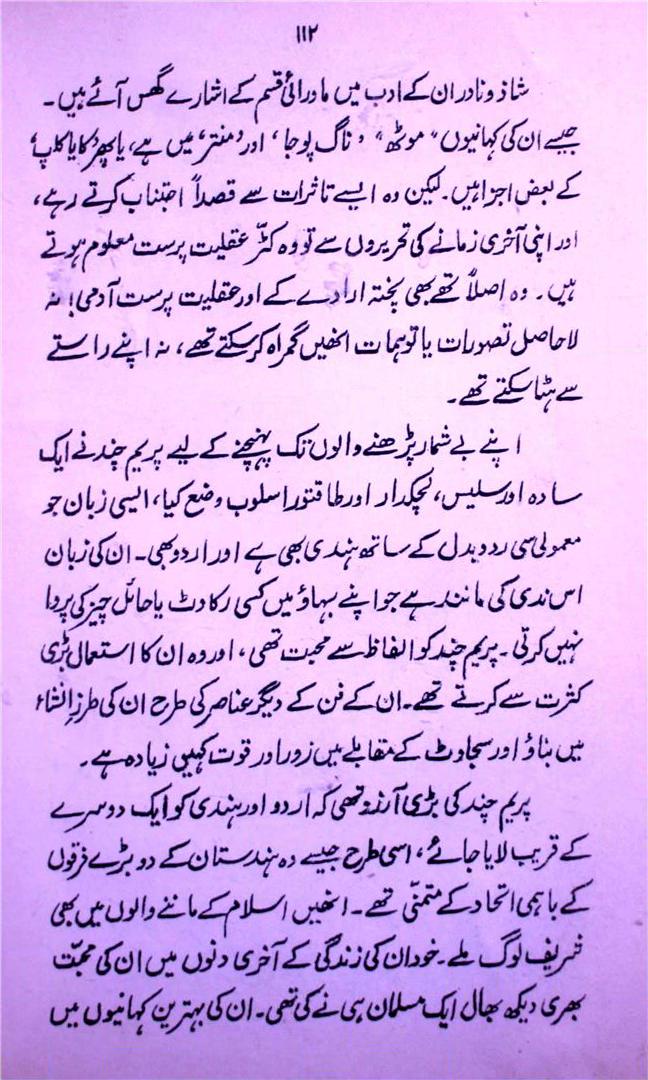 ۱۱۲
شاذ و نادر ان کے ادب میں ماورائی قسم کے اشارے گھس آئے ہیں۔
جیسے ان کی کہانیوں "موٹھ" 'ناگ پوجا' اور 'منتر' میں ہے، یا پھر 'کایا کلپ'
کے بعض اجزا ہیں۔ لیکن وہ ایسے تاثرات سے قصداً اجتناب کرتے رہے،
اور اپنی آخری زمانے کی تحریروں سے تو وہ کٹّر عقلیت پرست معلوم ہوتے
ہیں۔ وہ اصلاً تھے بھی پختہ ارادے کے اور عقلیت پرست آدمی! نہ
لاحاصل تصورات یا توہمات انھیں گمراہ کرسکتے تھے، نہ اپنے راستے
سے ہٹا سکتے تھے۔
اپنے بے شمار پڑھنے والوں تک پہنچنے کے لیے پریم چند نے ایک
سادہ اور سلیس، لچکدار اور طاقتور اسلوب وضع کیا، ایسی زبان جو
معمولی سی ردوبدل کے ساتھ ہندی بھی ہے اور اردو بھی۔ ان کی زبان
اس ندی کی مانند ہے جو اپنے بہاؤ میں کسی رکاوٹ یا حائل چیز کی پروا
نہیں کرتی۔ پریم چند کو الفاظ سے محبت تھی، اور وہ ان کا استعمال بڑی
کثرت سے کرتے تھے۔ ان کے فن کے دیگر عناصر کی طرح ان کی طرزِ انشاء
میں بناؤ اور سجاوٹ کے مقابلے میں زور اور قوت کہیں زیادہ ہے۔
پریم چند کی بڑی آرزو تھی کہ اردو اور ہندی کو ایک دوسرے
کے قریب لایا جائے، اسی طرح جیسے وہ ہندستان کے دو بڑے فرقوں
کے باہمی اتحاد کے متمنّی تھے۔ انھیں اسلام کے ماننے والوں میں بھی
شریف لوگ ملے۔ خود ان کی زندگی کے آخری دنوں میں ان کی محبّت
بھری دیکھ بھال ایک مسلمان ہی نے کی تھی۔ ان کی بہترین کہانیوں میں